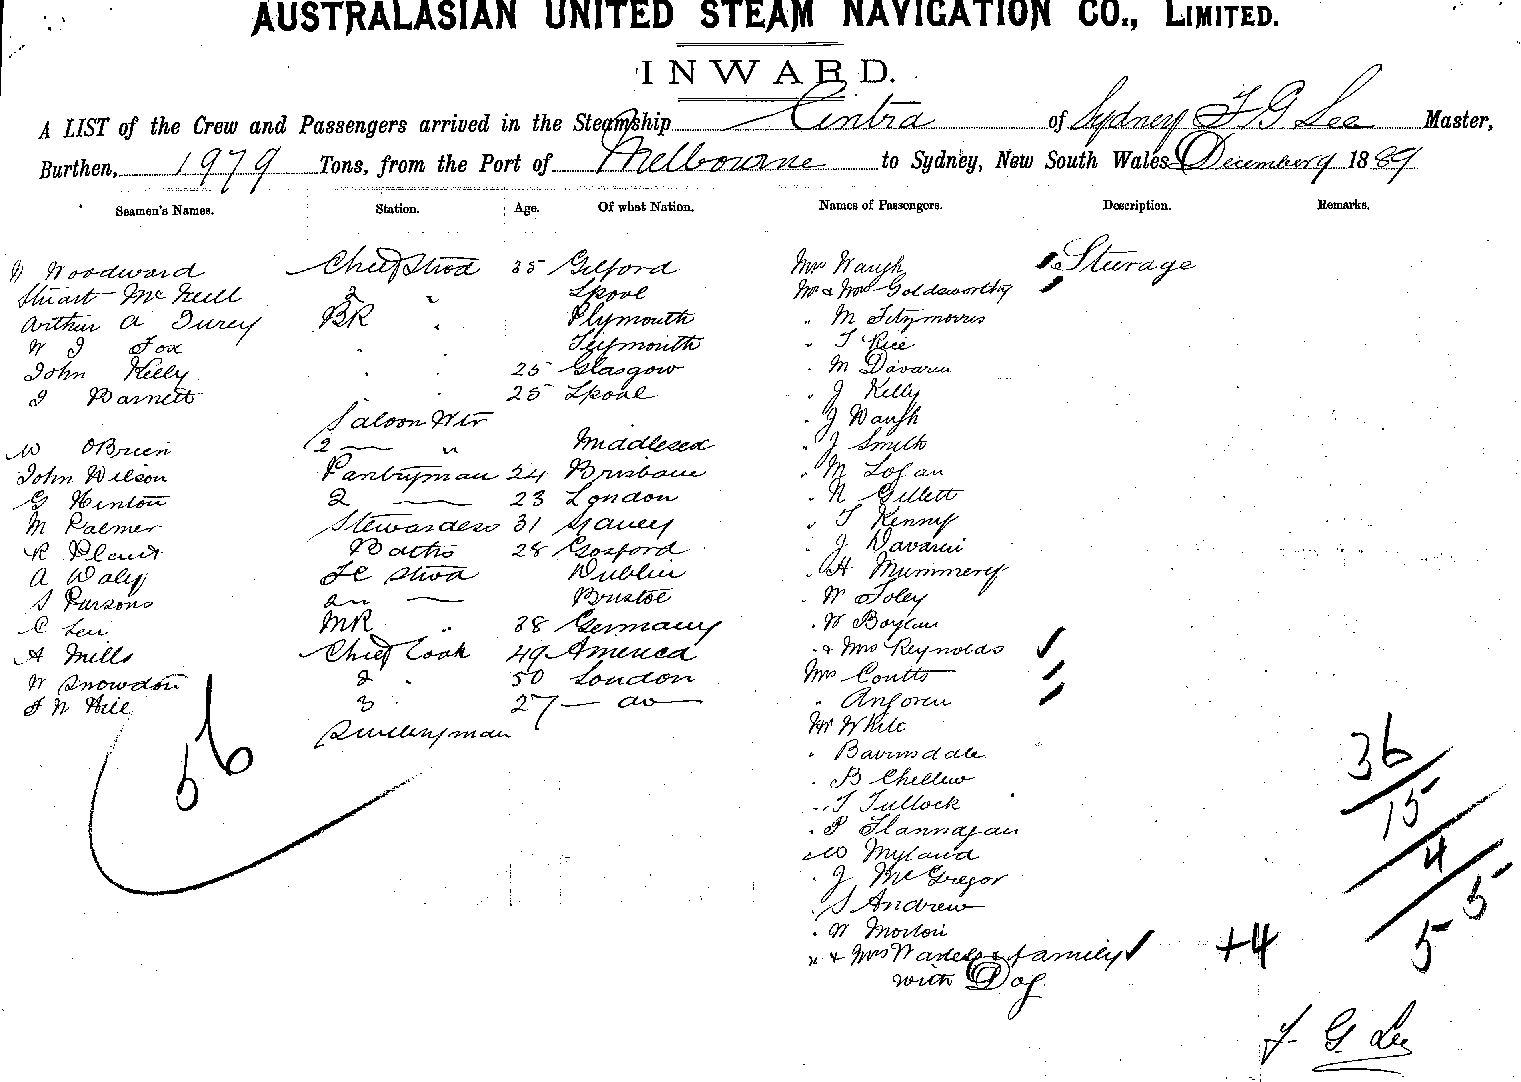 AUSTRALASIAN UNITED STEAM NAVIGATION CO., LIMITED.
INWARD.
A LIST of the Crew and Passengers arrived in the Steamship Cintra of Sydney F G Lee Master,
Burthen, 1979 Tons, from the Port of Melbourne to Sydney, New South Wales December 9 1889
Seamen's Names. Station. Age. Of what Nation. Names of Passengers. Description. Remarks.
Woodward Chief Stwd 35 Gilford Mrs Waugh Steerage
Stuart McNeill 2 " Lpool Mr & Mrs Goldsworthy
Arthur A Turey BR " Plymouth " M Fitzmorris
W J Fox " " " T Rice
John Kelly " " 25 Glasgow " M Davaren
J Barnett " " 25 Lpool " J Kelly
Saloon Wtr " J Waugh
W OBrien 2 — " Middlesex " J Smith
John Wilson Pantryman 24 Brisbane " M Logan
G Hinton 2 — 23 London " N Gillett
M Palmer Stewardess 31 " T Kenny
R Baths 28 Gosford " J Davarin
A Waly FC Stwd Dublin " H Mummery
S Parsons 2nd — Bristol " W Foley
C MR " 38 Germany " W Boylan
A Mills Chief Cook 49 America " & Mrs Reynolds
W Snowdon 2 " 50 London Mrs Coutts
F W Hill 3 " 27 — do — " Angoren
Sculleryman Mr White
56
" Bairnsdale
" B Chellew
" T Tullock
" P Flannagan
" W Myland
" J McGregor
" S Andrew
" W Morton
" & Mrs & family
with Dog
+4
36
15
4
55
F. G. Lee